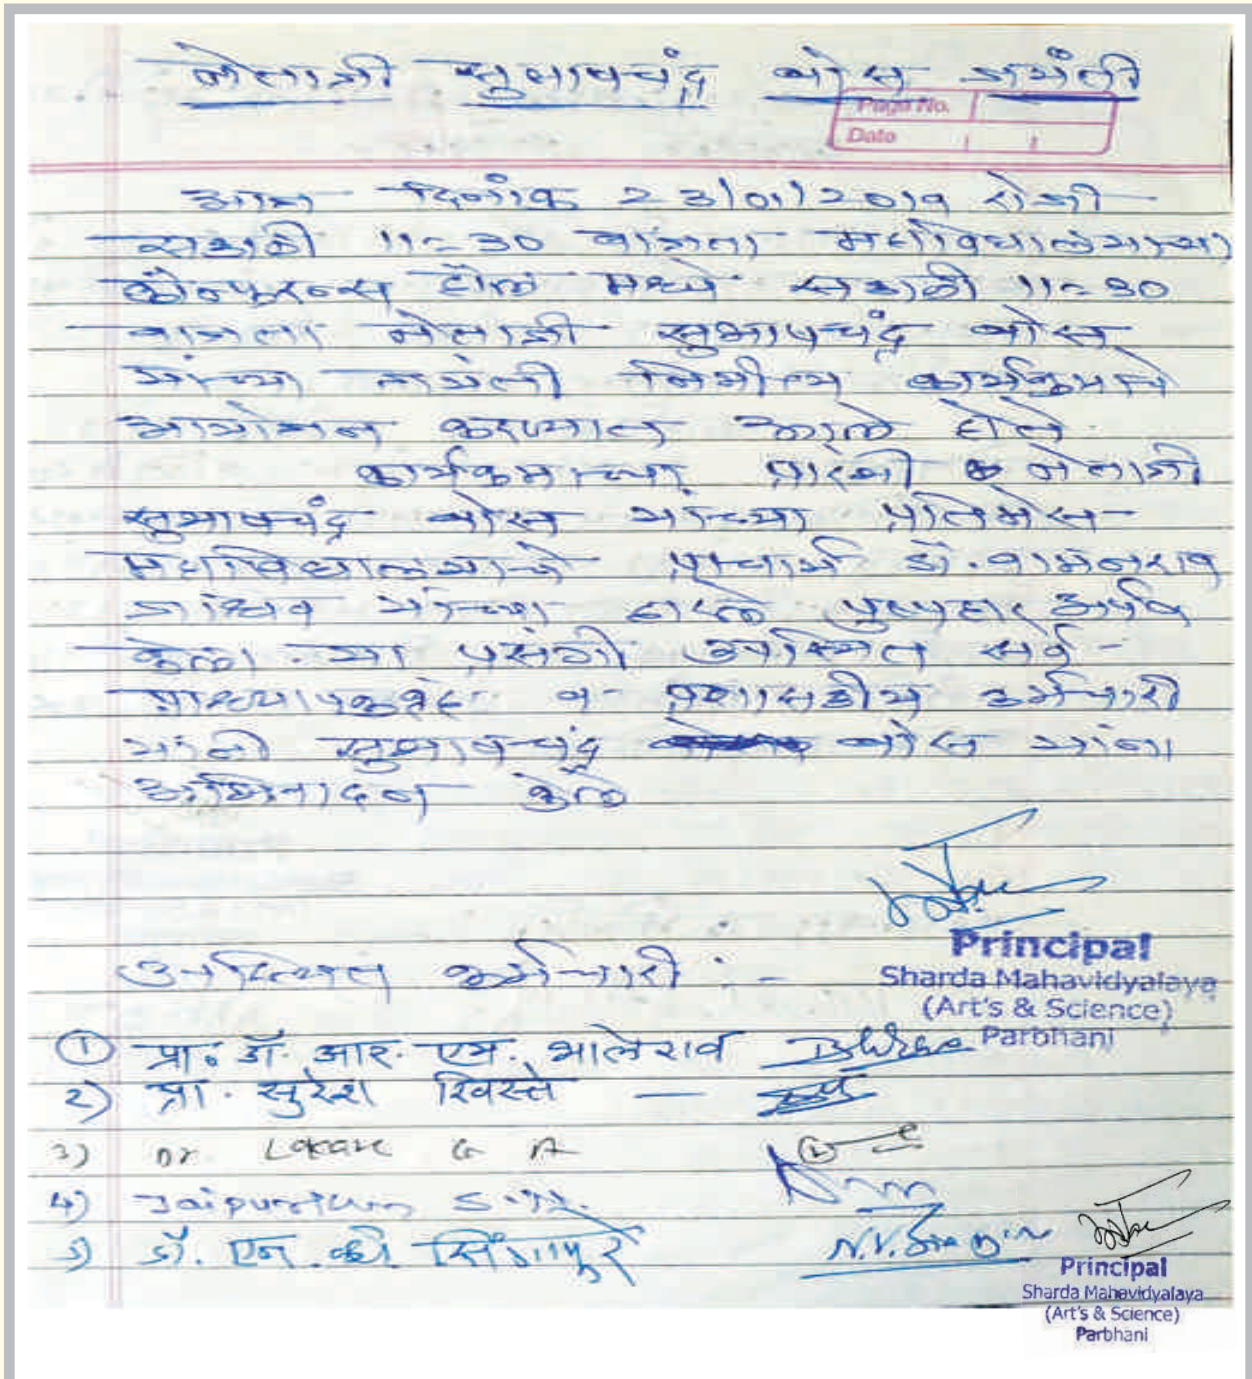 नेताजी सुभाषचंद्र बोस जयंती
Page No.
Date
आज दिनांक 23/01/2019 रोजी
सकाळी 11=30 वाजता महाविद्यालयाच्या
कॉन्फरन्स हॉल मध्ये सकाळी 11=30
वाजता नेताजी सुभाषचंद्र बोस
यांच्या जयंती निमीत्य कार्यक्रमाचे
आयोजन करण्यात आले होते.
कार्यक्रमाच्या प्रारंभी नेताजी
सुभाषचंद्र बोस यांच्या प्रतिमेस
महाविद्यालयाचे प्राचार्य डॉ. वामनराव
जाधव यांच्या हस्ते पुष्पहार अर्पण
केला. या प्रसंगी उपस्थित सर्व -
प्राध्यापकवृंद व प्रशासकीय कर्मचारी
यांनी सुभाषचंद्र बोस यांना
अभिवादन केले
Principal
Sharda Mahavidyalaya
(Art's & Science)
Parbhani
उपस्थित कर्मचारी : -
1 प्रा. डॉ. आर. एम. भालेराव
2) प्रा. सुरेश खिस्ते —
3) Dr. G A
4) S.N.
5) डॉ. एन. व्ही सिंगापुरे
Principal
Sharda Mahavidyalaya
(Art's & Science)
Parbhani